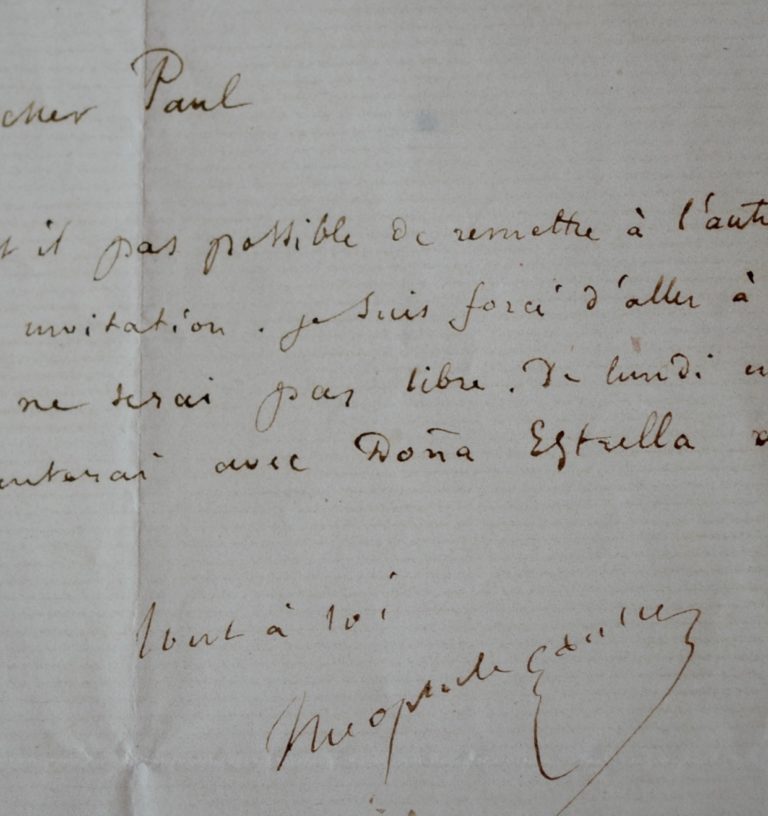 cher Paul
t il pas possible de remettre à l'autr
invitation. je suis forcé d'aller à
ne serai pas libre. De lundi en
enterai avec Doña Estrella
tout à toi
Theophile Gautier